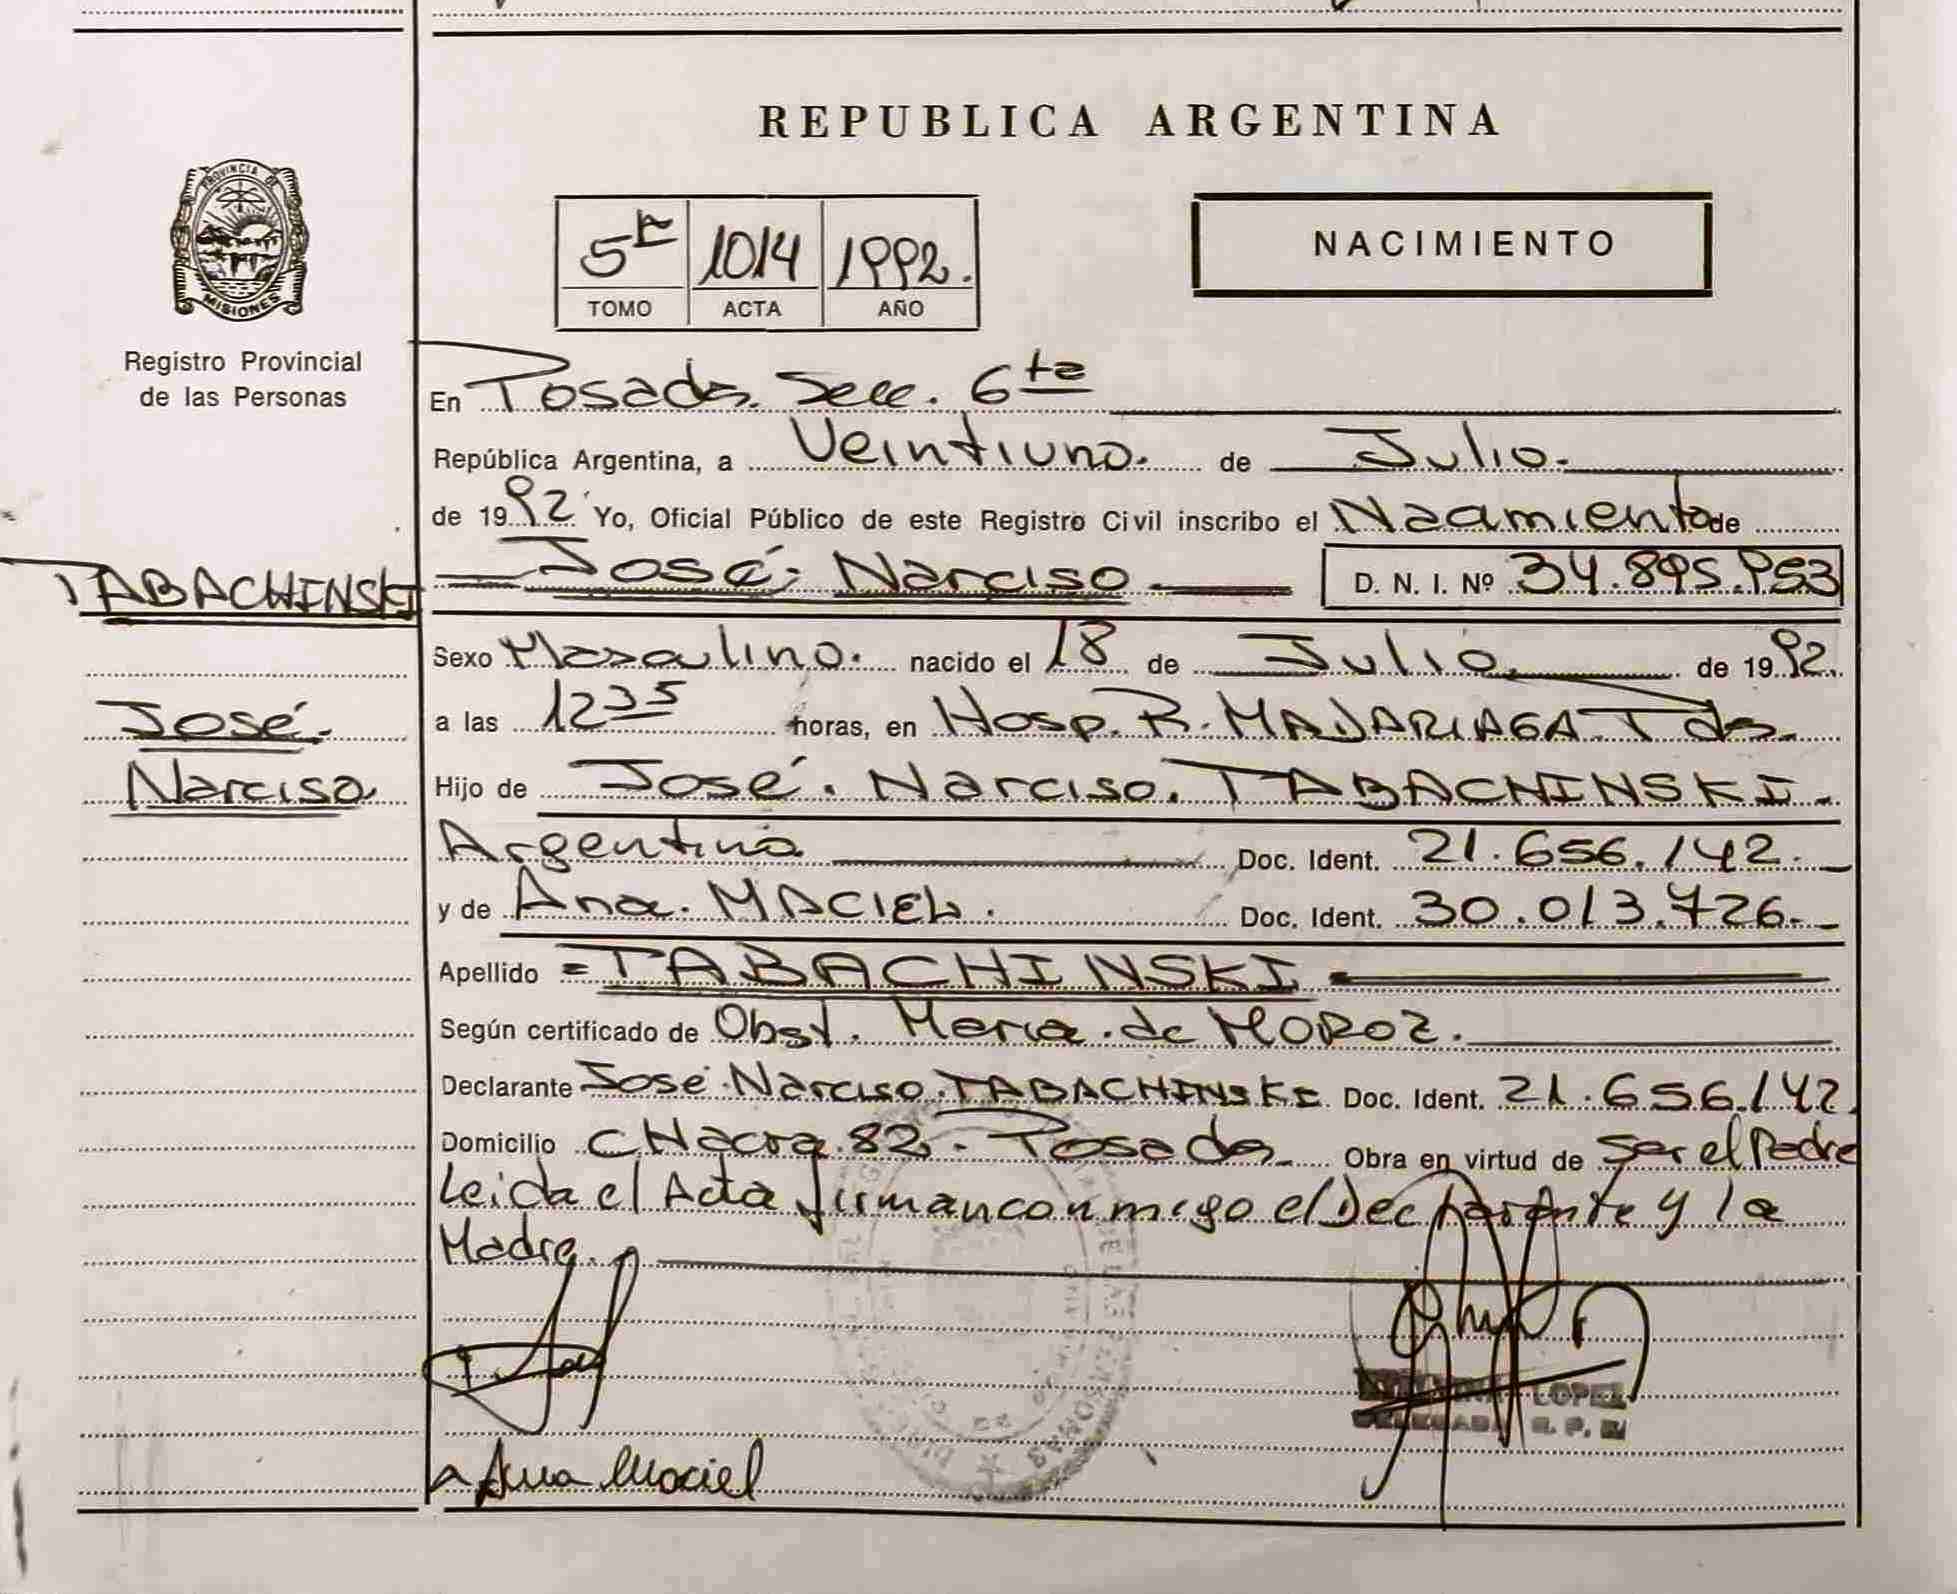 REPUBLICA ARGENTINA
PROVINCIA DE
MISIONES
Registro Provincial
de las Personas
5ta 1014 1992.
TOMO ACTA AÑO
NACIMIENTO
En Posadas. Secc. 6ta
República Argentina, a Veintiuno. de Julio.
de 1992 Yo, Oficial Público de este Registro Civil inscribo el Nacimiento de
TABACHINSKI
José Narciso D. N. I. Nº 34.895.953
Sexo Masculino. nacido el 18 de Julio. de 1992.
José.
Narciso
a las 12 35 horas, en Hosp. R. MADARIAGA Pdas.
Hijo de José. Narciso. TABACHINSKI.
Argentina Doc. Ident. 21.656.142.
y de Ana. MACIEL. Doc. Ident. 30.013.726.
Apellido = TABACHINSKI =
Según certificado de Obst. Maria. de MOROZ.
Declarante José Narciso TABACHINSKI Doc. Ident. 21.656.142.
Domicilio CHacra 82. Posadas. Obra en virtud de Ser el Padre
Leida el Acta firman conmigo el Declarante y la
Madre.
LOPEZ
Ana Maciel